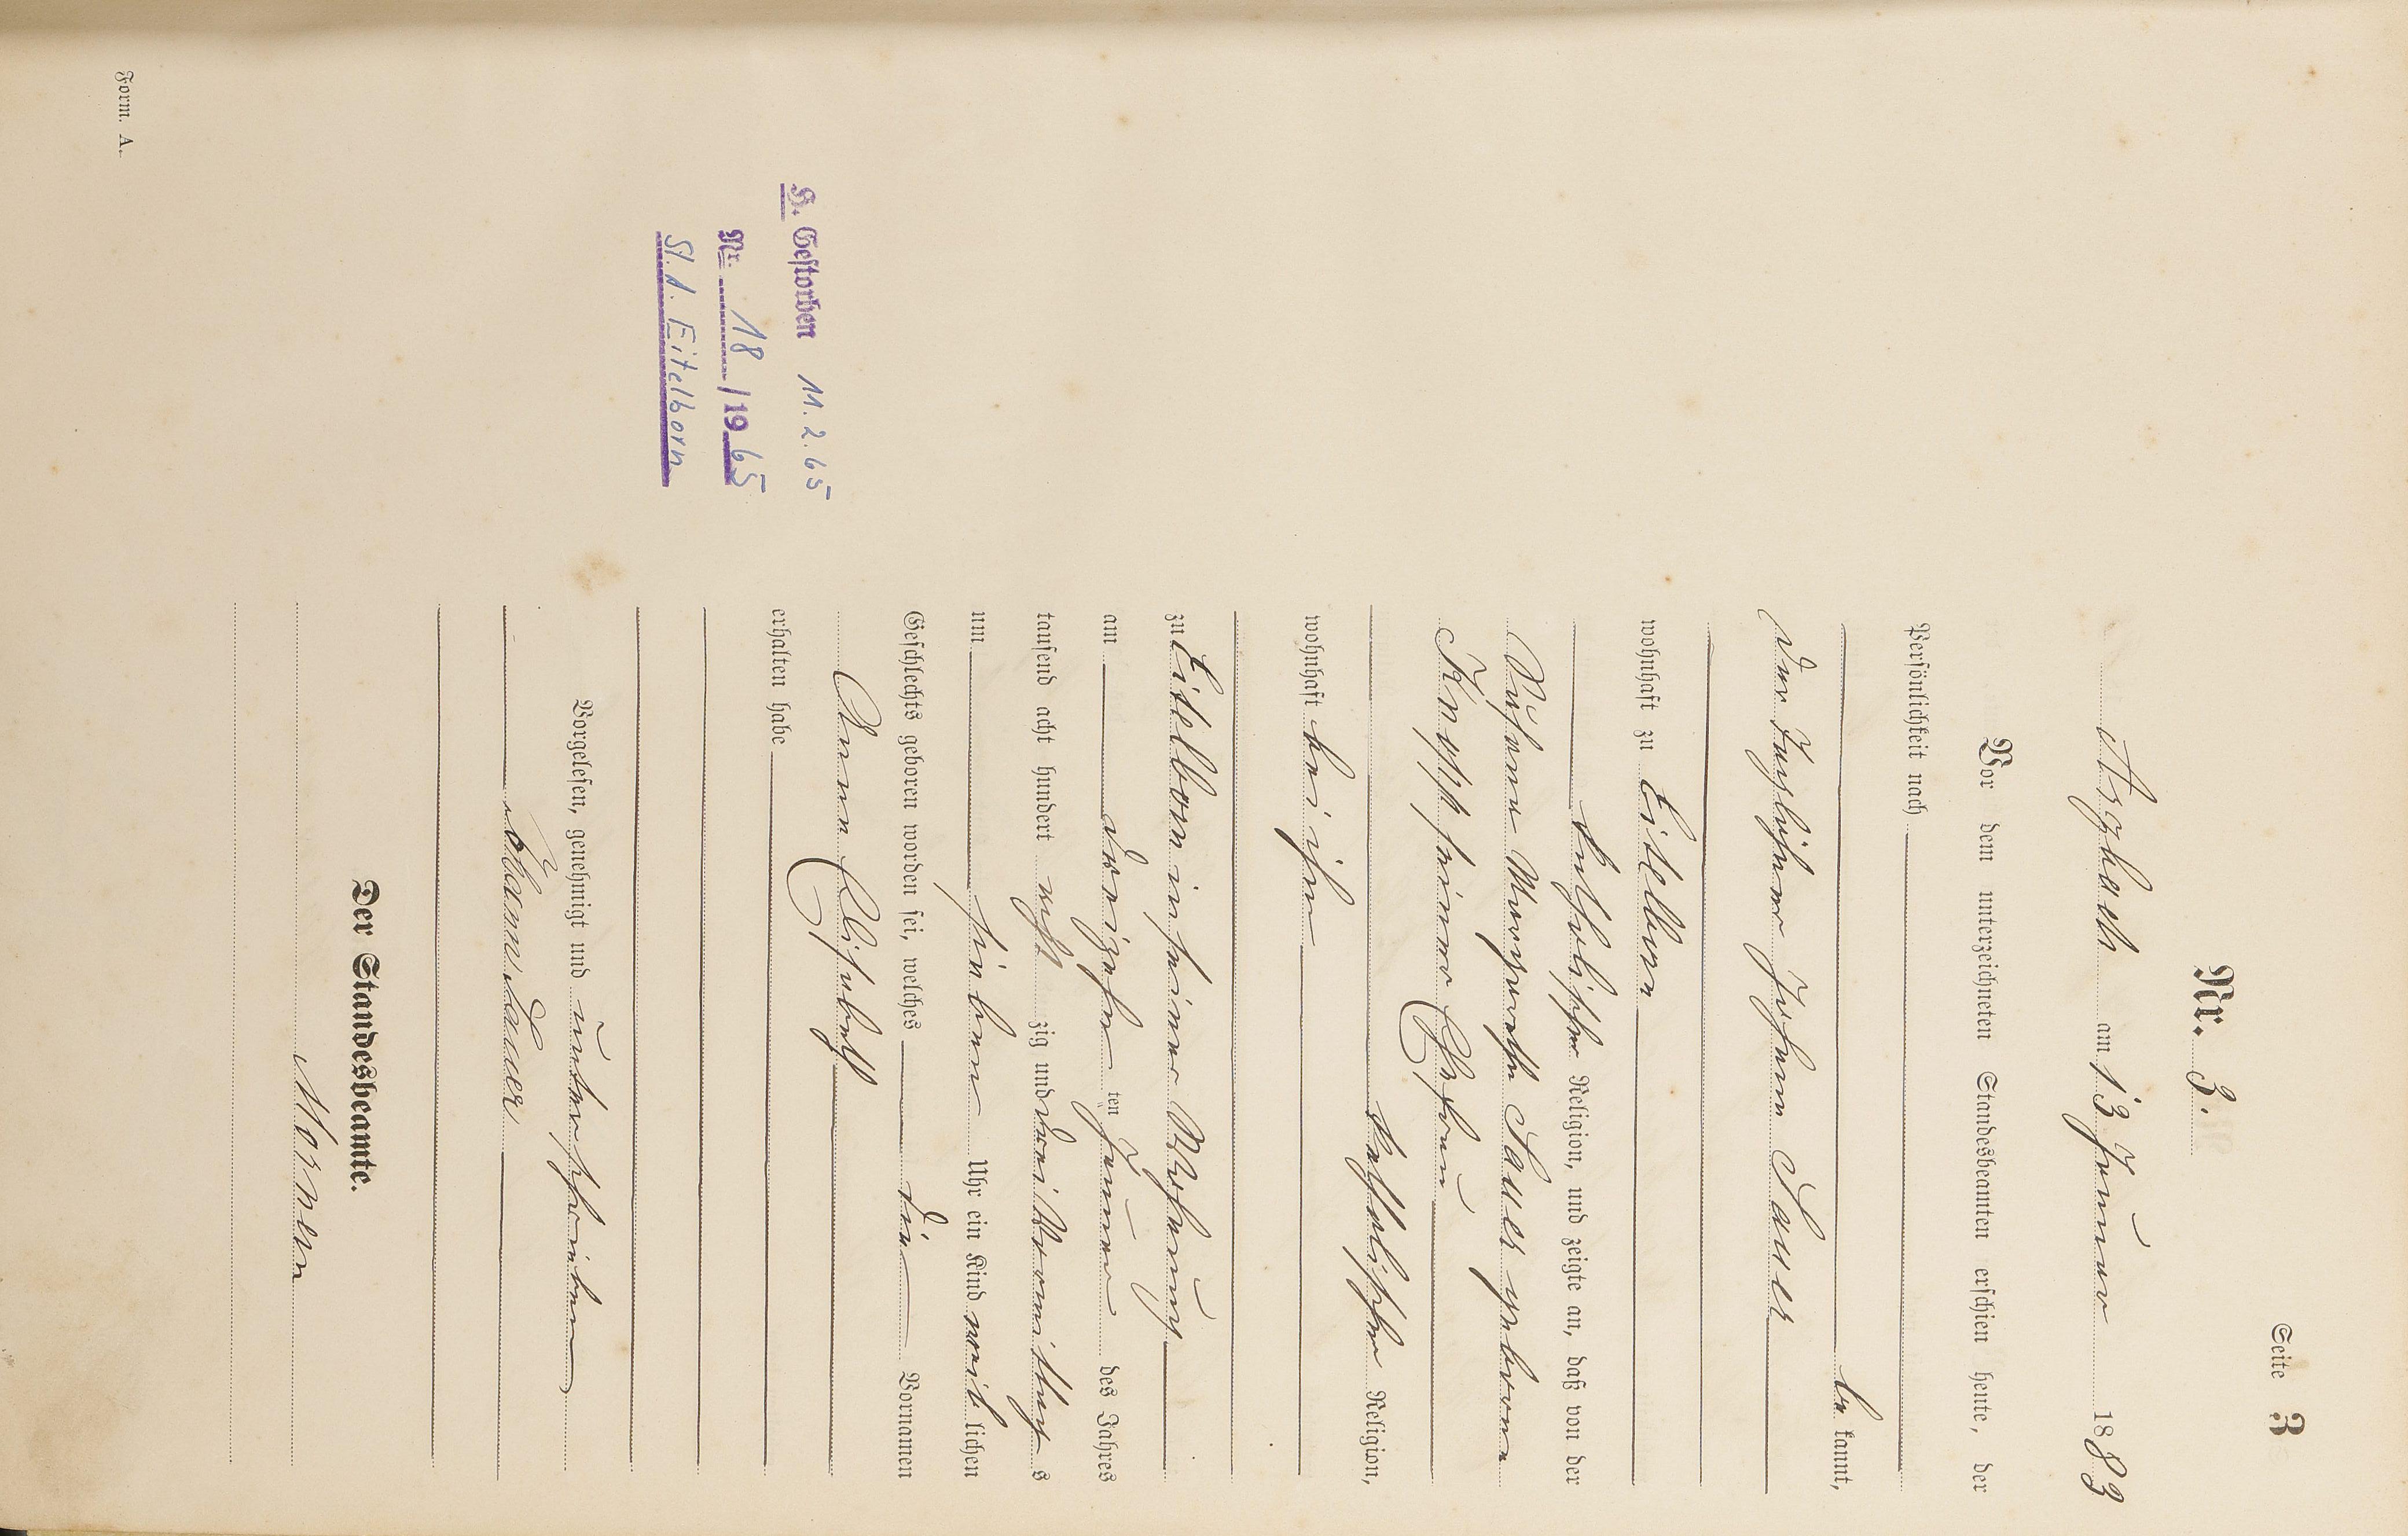 Seite 3
Nr. 3.
Arzbach am 13 Januar 1883
Vor dem unterzeichneten Standesbeamten erschien heute, der
Persönlichkeit nach
be kannt,
der Taglöhner Johann Sauer
wohnhaft zu Eitelborn
katholischer Religion, und zeigte an, daß von der
Johann Sauer geborne
Knopp seiner Ehefrau
katholischer Religion,
wohnhaft bei ihm
zu Eitelborn in seiner Wohnung
am dreizehn ten Januar des Jahres
tausend acht hundert acht zig und drei Vormittag s
um sieben Uhr ein Kind weib lichen
Geschlechts geboren worden sei, welches die Vornamen
Anna Elisabeth
erhalten habe
Vorgelesen, genehmigt und unterschrieben
Johann Sauer
Der Standesbeamte.
H. Gestorben 11.2.65
Nr. 18/1965
St.A. Eitelborn
Form. A.